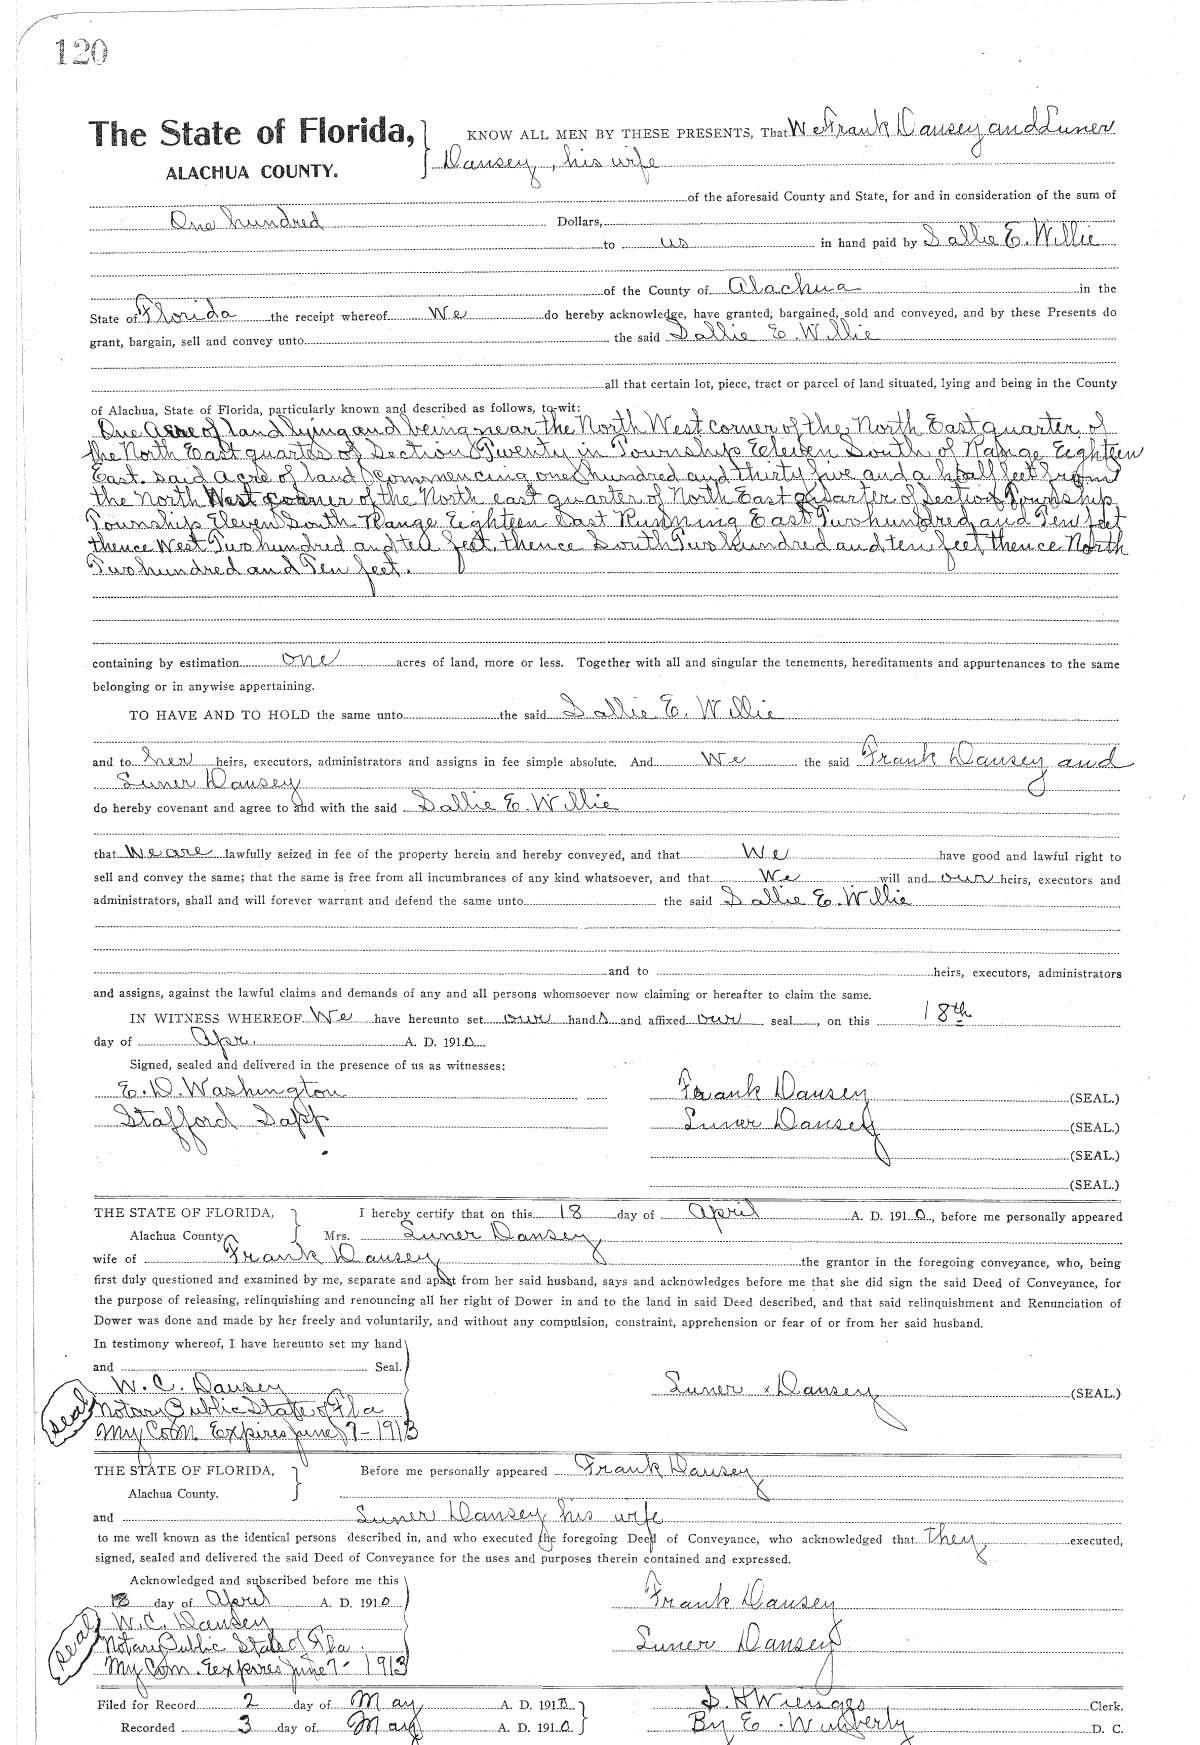 120
The State of Florida, KNOW ALL MEN BY THESE PRESENTS, That We Frank Dausey and Luner
ALACHUA COUNTY. Dausey, his wife
of the aforesaid County and State, for and in consideration of the sum of
One hundred Dollars,
to us in hand paid by Sallie E. Willie
of the County of Alachua in the
State of Florida the receipt whereof We do hereby acknowledge, have granted, bargained, sold and conveyed, and by these Presents do
grant, bargain, sell and convey unto the said Sallie E. Willie
all that certain lot, piece, tract or parcel of land situated, lying and being in the County
of Alachua, State of Florida, particularly known and described as follows, to-wit:
One Acre of land lying and being near the North West corner of the North East quarter of
the North East quarter of Section Twenty in Township Eleven South of Range Eighteen
East. said acre of land commencing one hundred and thirty five and a half feet from
the North West corner of the North east quarter of North East quarter of Section Township
Township Eleven South Range Eighteen East Running East Two hundred and Ten feet
thence West Two hundred and ten feet, thence South Two hundred and ten feet thence North
Two hundred and Ten feet.
containing by estimation one acres of land, more or less. Together with all and singular the tenements, hereditaments and appurtenances to the same
belonging or in anywise appertaining.
TO HAVE AND TO HOLD the same unto the said Sallie E. Willie
and to her heirs, executors, administrators and assigns in fee simple absolute. And We the said Frank Dausey and
Luner Dausey
do hereby covenant and agree to and with the said Sallie E. Willie
that We are lawfully seized in fee of the property herein and hereby conveyed, and that We have good and lawful right to
sell and convey the same; that the same is free from all incumbrances of any kind whatsoever, and that We will and our heirs, executors and
administrators, shall and will forever warrant and defend the same unto the said Sallie E. Willie
and to heirs, executors, administrators
and assigns, against the lawful claims and demands of any and all persons whomsoever now claiming or hereafter to claim the same.
IN WITNESS WHEREOF We have hereunto set our hands and affixed our seal, on this 18th
day of Apr. A. D. 1910
Signed, sealed and delivered in the presence of us as witnesses:
E. D. Washington Frank Dausey (SEAL.)
Stafford Sapp Luner Dausey (SEAL.)
(SEAL.)
(SEAL.)
THE STATE OF FLORIDA, I hereby certify that on this 18 day of April A. D. 1910, before me personally appeared
Alachua County. Mrs. Luner Dausey
wife of Frank Dausey the grantor in the foregoing conveyance, who, being
first duly questioned and examined by me, separate and apart from her said husband, says and acknowledges before me that she did sign the said Deed of Conveyance, for
the purpose of releasing, relinquishing and renouncing all her right of Dower in and to the land in said Deed described, and that said relinquishment and Renunciation of
Dower was done and made by her freely and voluntarily, and without any compulsion, constraint, apprehension or fear of or from her said husband.
In testimony whereof, I have hereunto set my hand
and Seal.
W. C. Dausey Luner x Dausey (SEAL.)
seal Notary Public State of Fla
My Com Expires June 7-1913
THE STATE OF FLORIDA, Before me personally appeared Frank Dausey
Alachua County.
and Luner Dausey his wife
to me well known as the identical persons described in, and who executed the foregoing Deed of Conveyance, who acknowledged that they executed,
signed, sealed and delivered the said Deed of Conveyance for the uses and purposes therein contained and expressed.
Acknowledged and subscribed before me this
18 day of April A. D. 1910 Frank Dausey
W. C. Dausey
seal Notary Public State of Fla. Luner Dausey
My Com. Expires June 7- 1913
Filed for Record 2 day of May A. D. 1910 S. H Wienges Clerk.
Recorded 3 day of May A. D. 1910. By E. Wimberly D. C.